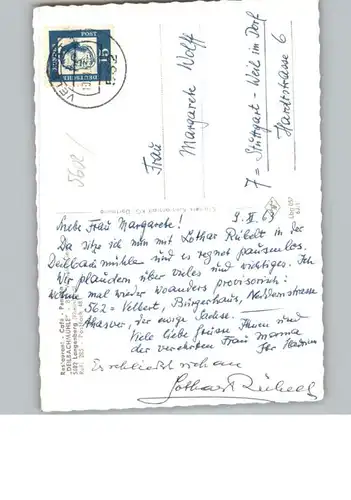 DEUTSCHE
POST
15
VEL
5602
Frau
Margarete Wolff
7 = Stuttgart - Weil im Dorf
Hardtstrasse 6
5602/
9. XI. 63
Liebe Frau Margarete!
Da sitze ich nun mit Lothar Rübelt in der
Deilbachmühle und es regnet pausenlos.
Wir plaudern über vieles und wichtiges. Ich
wohne mal wieder woanders provisorisch:
562 = Velbert, Bürgerhaus,
Ahasver, der ewige
Viele liebe Grüsse Ihnen und
der verehrten Frau Mama
Ihr
Es schließt sich an
Lothar Rübelt
Restaurant - Café -
"DEILBACHMÜHLE"
5602 Langenberg